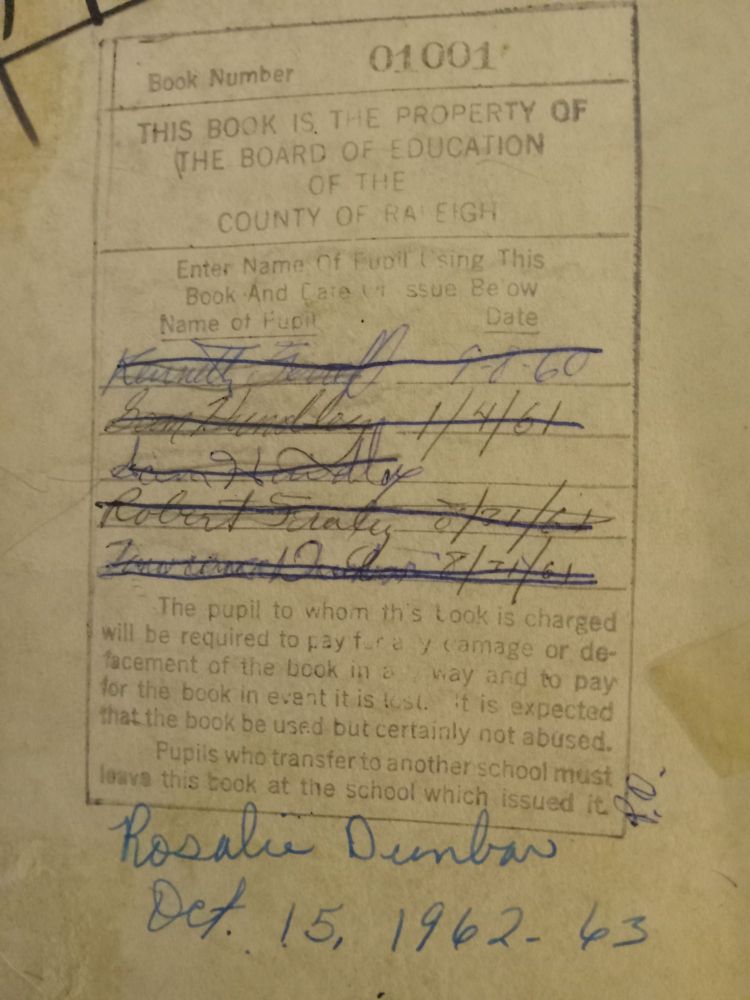 Book Number 01001
THIS BOOK IS THE PROPERTY OF
THE BOARD OF EDUCATION
OF THE
COUNTY OF RALEIGH
Enter Name Of Pupil Using This
Book And Date Of Issue Below
Name of Pupil Date
Kenneth 9-8-60
Sam Hundley 1/4/61
Sam Hundley
Robert 8/31/61
Dunbar 8/31/61
The pupil to whom this book is charged
will be required to pay for any damage or de-
facement of the book in any way and to pay
for the book in event it is lost. It is expected
that the book be used but certainly not abused.
Pupils who transfer to another school must
leave this book at the school which issued it.
Rosalie Dunbar
Oct. 15, 1962-63